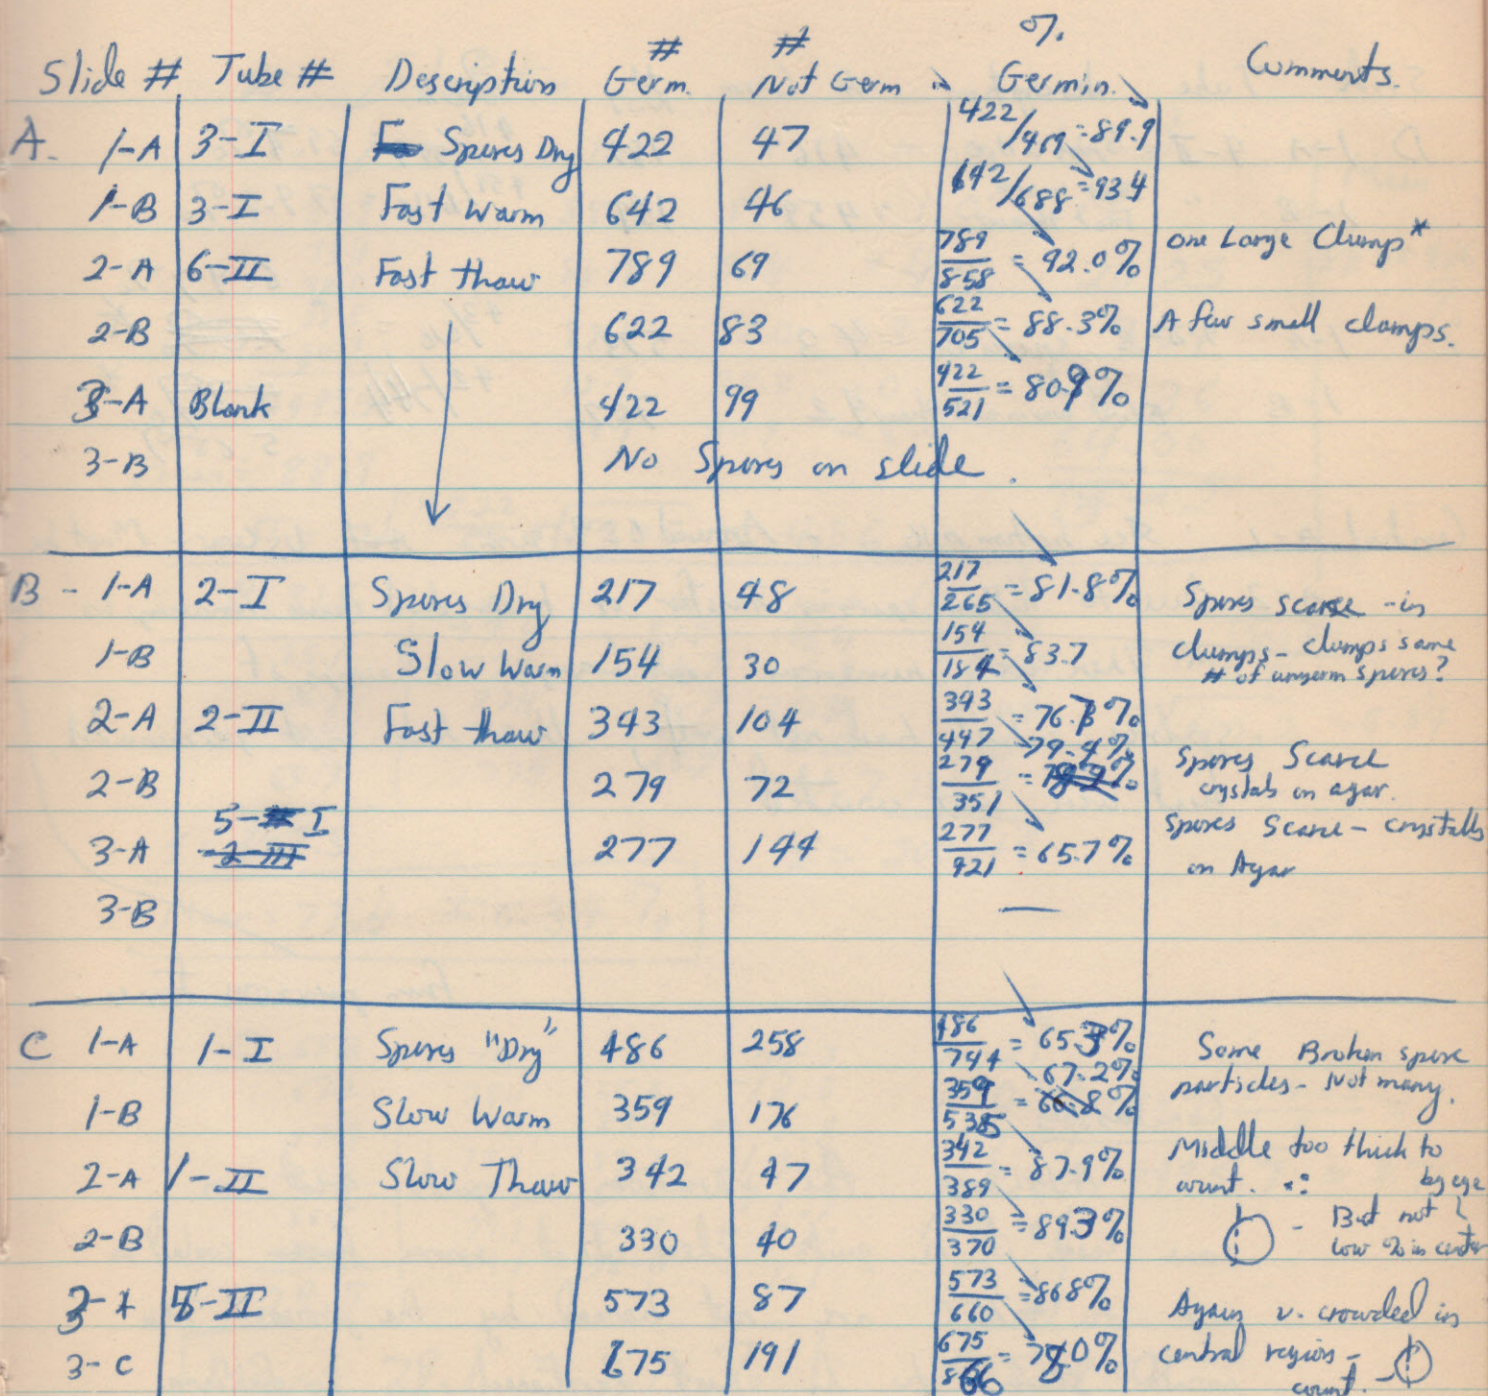 %
# #
Slide # Tube # Description Germ. Not Germ Germin. Comments.
A. 1-A 3-I Spores Dry 422 47 422/469 = 89.9
1-B 3-I Fast Warm 642 46 642/688 = 93.4
2-A 6-II Fast thaw 789 69 789/858 = 92.0% one Large Clump*
2-B 622 83 622/705 = 88.3% A few small clumps.
3-A Blank 422 99 422/521 = 80.9%
3-B No Spores on slide.
B - 1-A 2-I Spores Dry 217 48 217/265 = 81.8% Spores scarce - in
1-B Slow Warm 154 30 154/184 = 83.7 clumps - clumps same
# of ungerm spores?
2-A 2-II Fast thaw 343 104 343/447 = 76.7%
79.4%
2-B 279 72 279/351 = Spores Scarce
crystals on agar.
5-I
3-A 2-III 277 144 277/421 = 65.7% Spores Scarce - crystalls
on Agar
3-B —
C 1-A 1-I Spores "Dry" 486 258 486/744 = 65.3% Some Broken spore
67.2% particles - Not many.
1-B Slow Warm 359 176 359/535 = 66.8%
2-A 1-II Slow Thaw 342 47 342/389 = 87.9% Middle too thick to
count. by eye
2-B 330 40 330/370 = 89.3% - But not
low % in center
3-A 5-II 573 87 573/660 = 86.8% Again v. crowded in
3-C 675 191 675/866 = 78.0% central region -
count. -